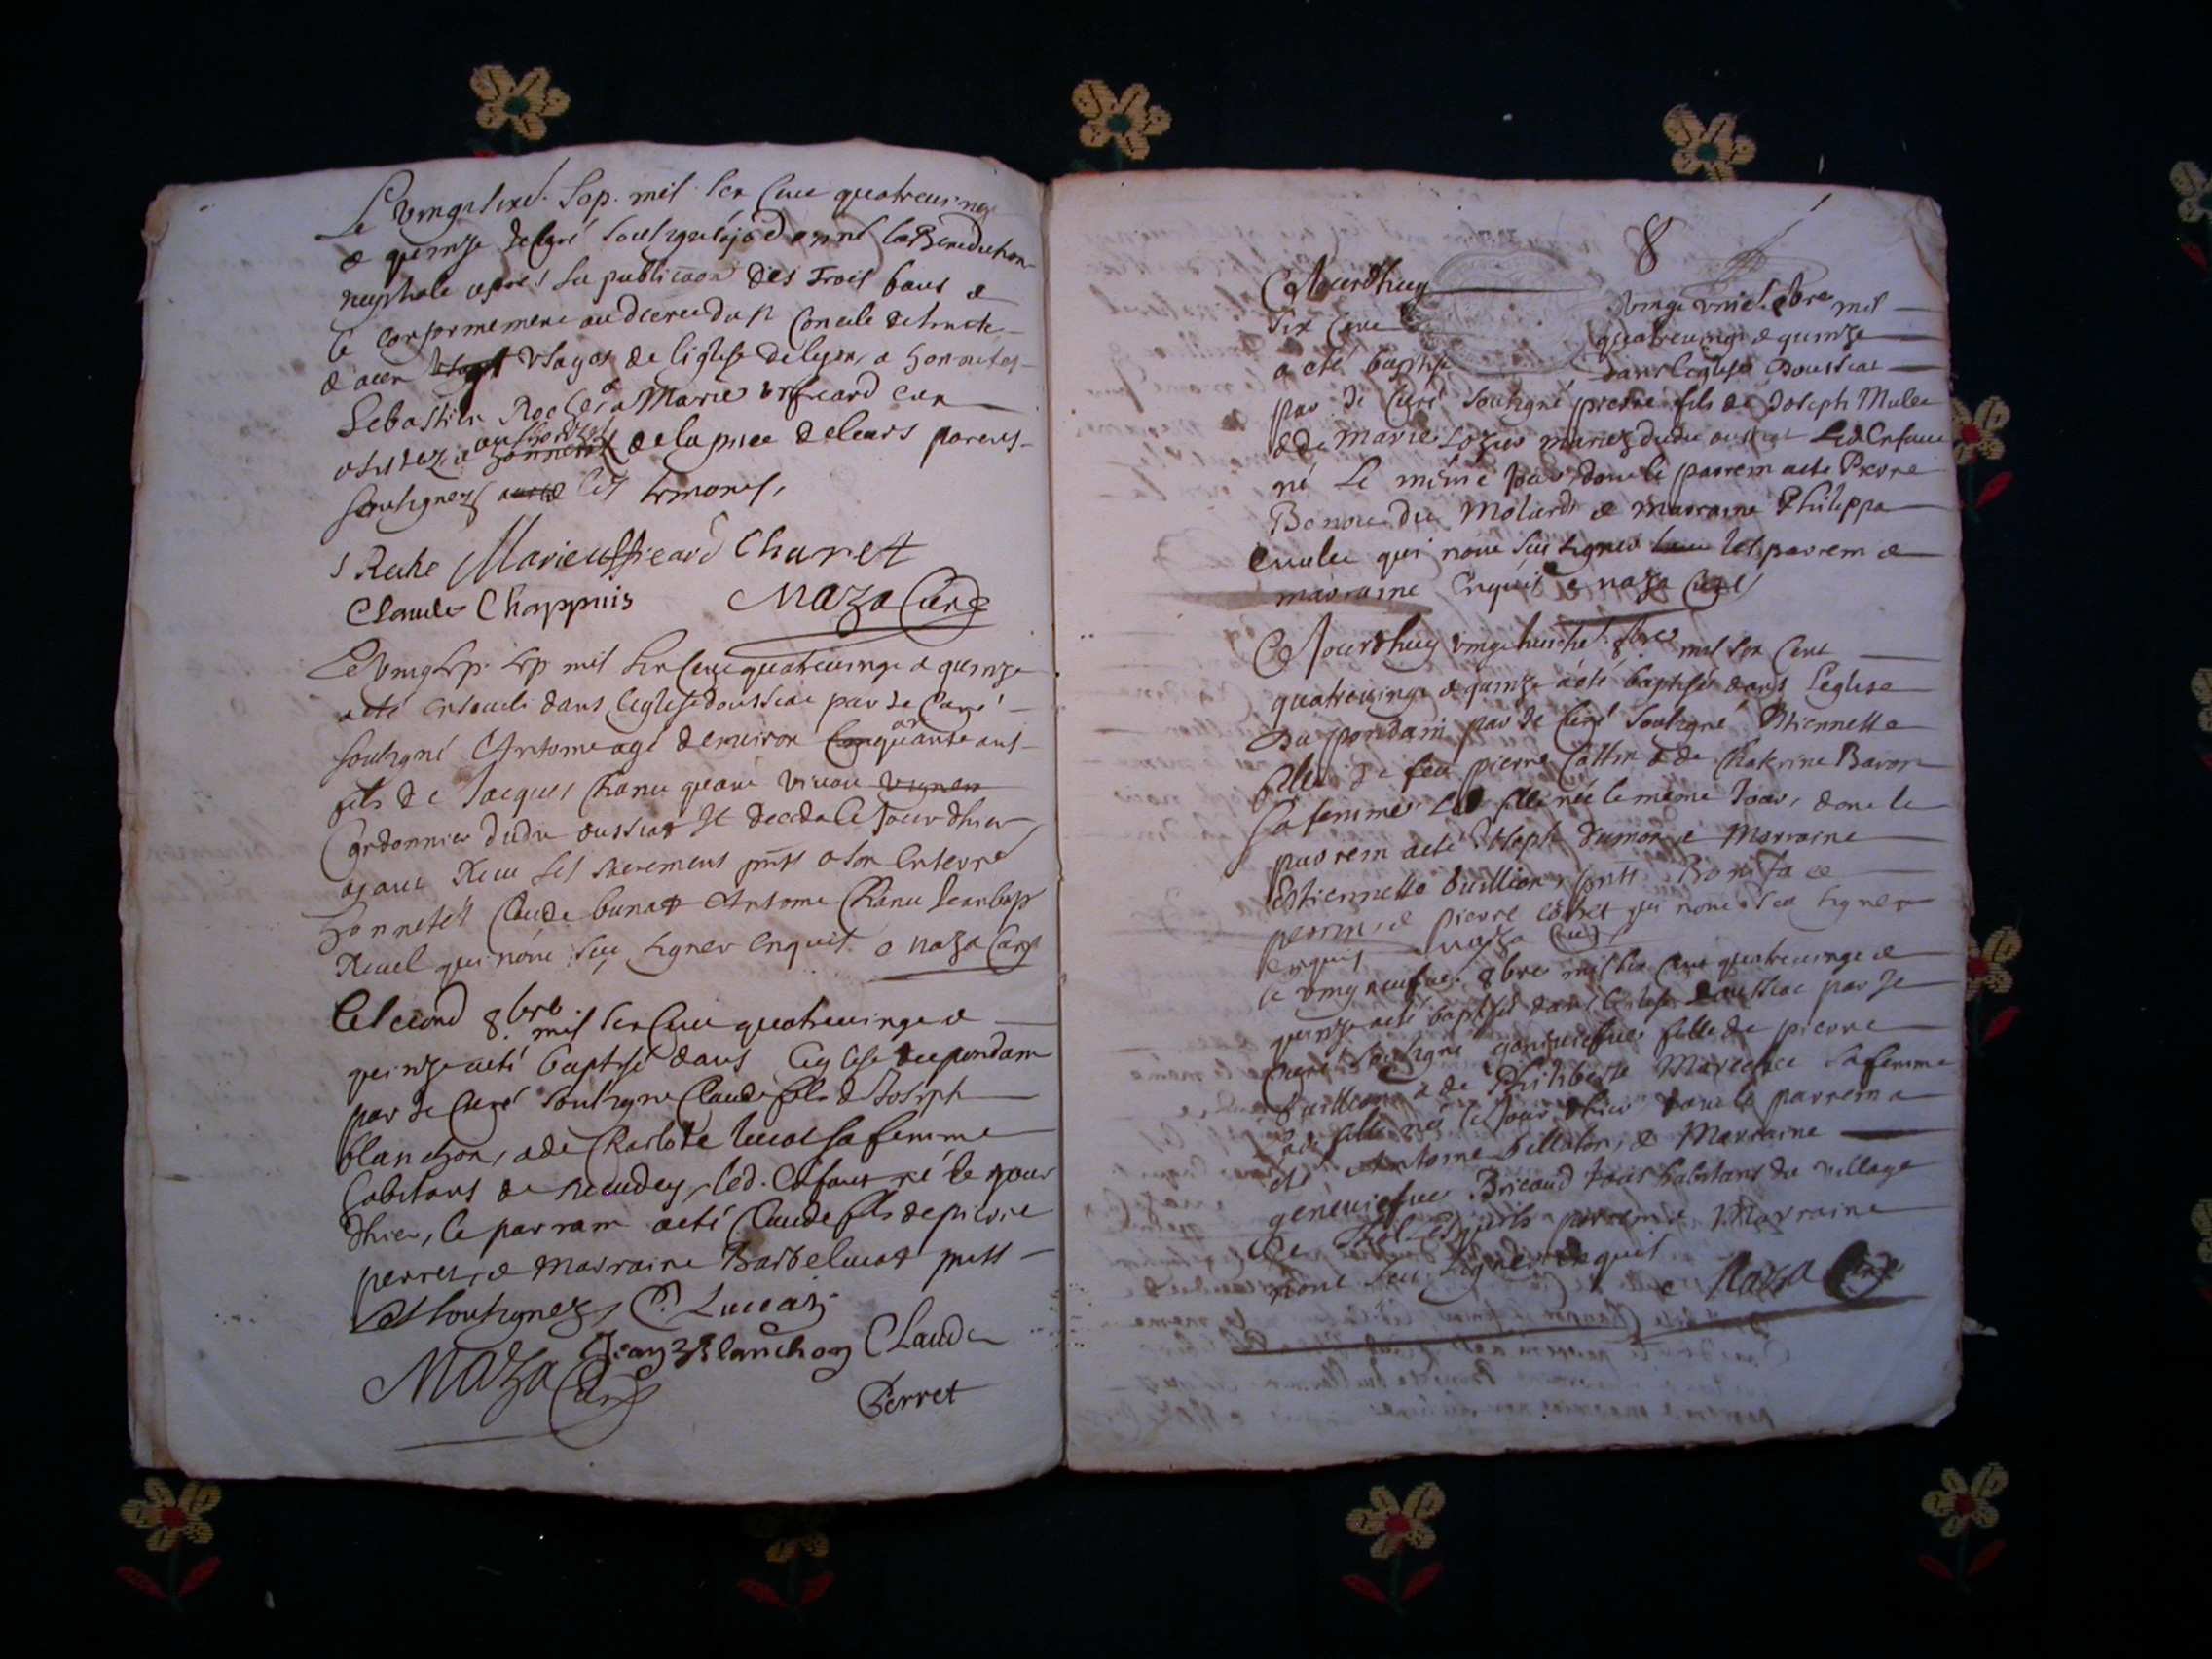 Le vingt sixe. Sep. mil six cens quatreving
& quinze Je Curé soubsigné ajé donné la Benediction
nuptiale apres la publicaon des Trois bans &
ce conformement au decret du st Concile de trente
& aux usages de l'église de lyon, a honnetes
Sebastien Roche & a Marie
de la pnce de leurs parens
soubsignez les temoins,
S Roche Marie Charet
Claude Chappuis Maza Curé
Le vingt sep. sep mil six cens quatrevingt & quinze
a eté enseveli dans l'eglise doussiat par Je Curé
soubsigné Antoine agé d'environ ans
fils de Jacques Chanu quand vivait
Cordonnier dudit oussiat et decedé le Jour dhier
ayant Receu les sacremens pnts a son enterre
honnetes Claude bunat Antoine Chanu Jean bap
Revel qui nont sçu signer enquis e Maza Curé
Le second 8bre mil six cens quatrevingt &
quinze a eté baptisé dans l'eglise du pondain
par Je Curé soubsigné Claude fils de Joseph
blanchon, & de Charlote lucat sa femme
habitans de led. enfant né le jour
dhier, le parrain a eté Claude fils de pierre
perret, & marraine Barbe lucat pnts
& soubsignez, C. Luccat
Jean Blanchon Claude
Maza Curé
Perret
8
Ce Jourdhuy vingt unie. 8bre mil
six cens quatrevingt & quinze
a eté baptisé dans leglise Doussiat
par Je Curé soubsigné pierre fils de Joseph Mulet
& de marie mariez dudit oussiat Led. enfant
né Le même Jour, dont le parrein a eté Pierre
du Molard & marraine Philippa
qui nont sçu signer les parrein &
marraine enquis e Maza Curé
Ce Jourdhuy vingt huictie. 8bre mil six cens
quatrevingt & quinze a eté baptisée dans l'eglise
du pondain par Je Curé soubsigné Etiennette
fille de feu pierre Cattin & de Chaterine Baron
sa femme Lad. fille née le meme Jour, dont le
parrein a eté Joseph Dumon & Marraine
Estiennette buillion, pnts Boniface
perrin, & pierre qui nont sçu signer
enquis Maza Curé
Le vingt neufvie. 8bre mil six cens quatrevingt &
quinze a eté baptisée dans l'eglise doussiat par Je
Curé soubsigné genevieve fille de pierre
buillion & de Philiberte sa femme
Lad. fille née le Jour dhier dont le parrein a
eté Antoine billalon, & Marraine
genevieve Bricaud tous habitans du village
de parrein & Marraine
nont sçu signer enquis
e Maza Curé